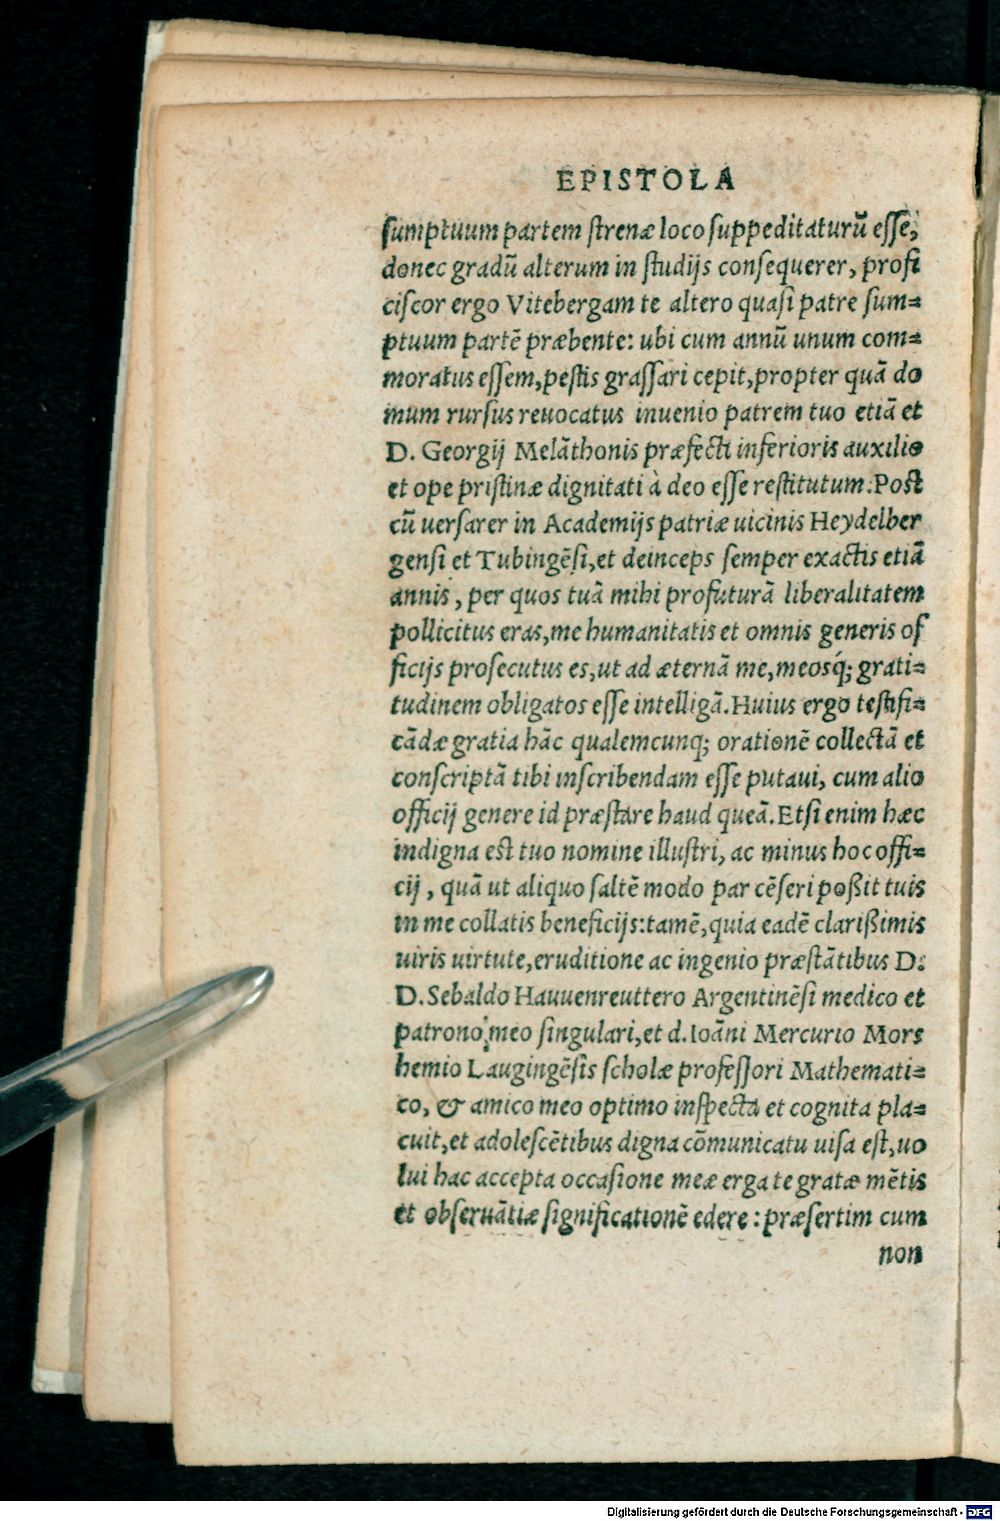 EPISTOLA
sumptuum partem strenæ loco suppeditaturũ esse,
donec gradũ alterum in studijs consequerer, profi
ciscor ergo Vitebergam te altero quasi patre sum=
ptuum partẽ præbente: ubi cum annũ unum com=
moratus essem, pestis grassari cepit, propter quã do
mum rursus reuocatus inuenio patrem tuo etiã et
D. Georgij Melãthonis præfecti inferioris auxilio
et ope pristinæ dignitati à deo esse restitutum. Post
cũ uersarer in Academijs patriæ uicinis Heydelber
gensi et Tubingẽsi, et deinceps semper exactis etiã
annis, per quos tuã mihi profuturã liberalitatem
pollicitus eras, me humanitatis et omnis generis of
ficijs prosecutus es, ut ad æternã me, meosq́; grati=
tudinem obligatos esse intelligã. Huius ergo testifi=
cãdæ gratia hãc qualemcunq; orationẽ collectã et
conscriptã tibi inscribendam esse putaui, cum alio
officij genere id præstare haud queã. Etsi enim hæc
indigna est tuo nomine illustri, ac minus hoc offi=
cij, quã ut aliquo saltẽ modo par cẽseri poßit tuis
in me collatis beneficijs: tamẽ, quia eadẽ clarißimis
uiris uirtute, eruditione ac ingenio præstãtibus D.
D. Sebaldo Hauuenreuttero Argentinẽsi medico et
patrono meo singulari, et d. Ioãni Mercurio Mors
hemio Laugingẽsis scholæ professori Mathemati=
co, & amico meo optimo inspecta et cognita pla=
cuit, et adolescẽtibus digna cõmunicatu uisa est, uo
lui hac accepta occasione meæ erga te gratæ mẽtis
et obseruãtiæ significationẽ edere: præsertim cum
non
Digitalisierung gefördert durch die Deutsche Forschungsgemeinschaft - DFG